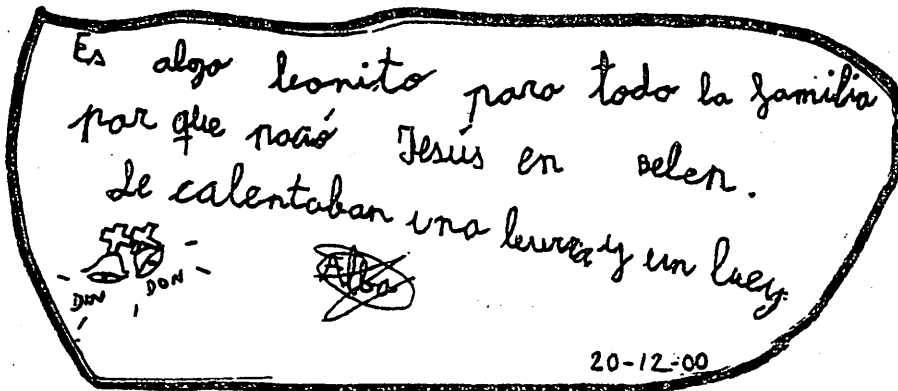 Es algo bonito para todo la familia
por que nació Jesús en Belen.
Le calentaban una burra y un buey
DIN DON
Alba
20-12-00